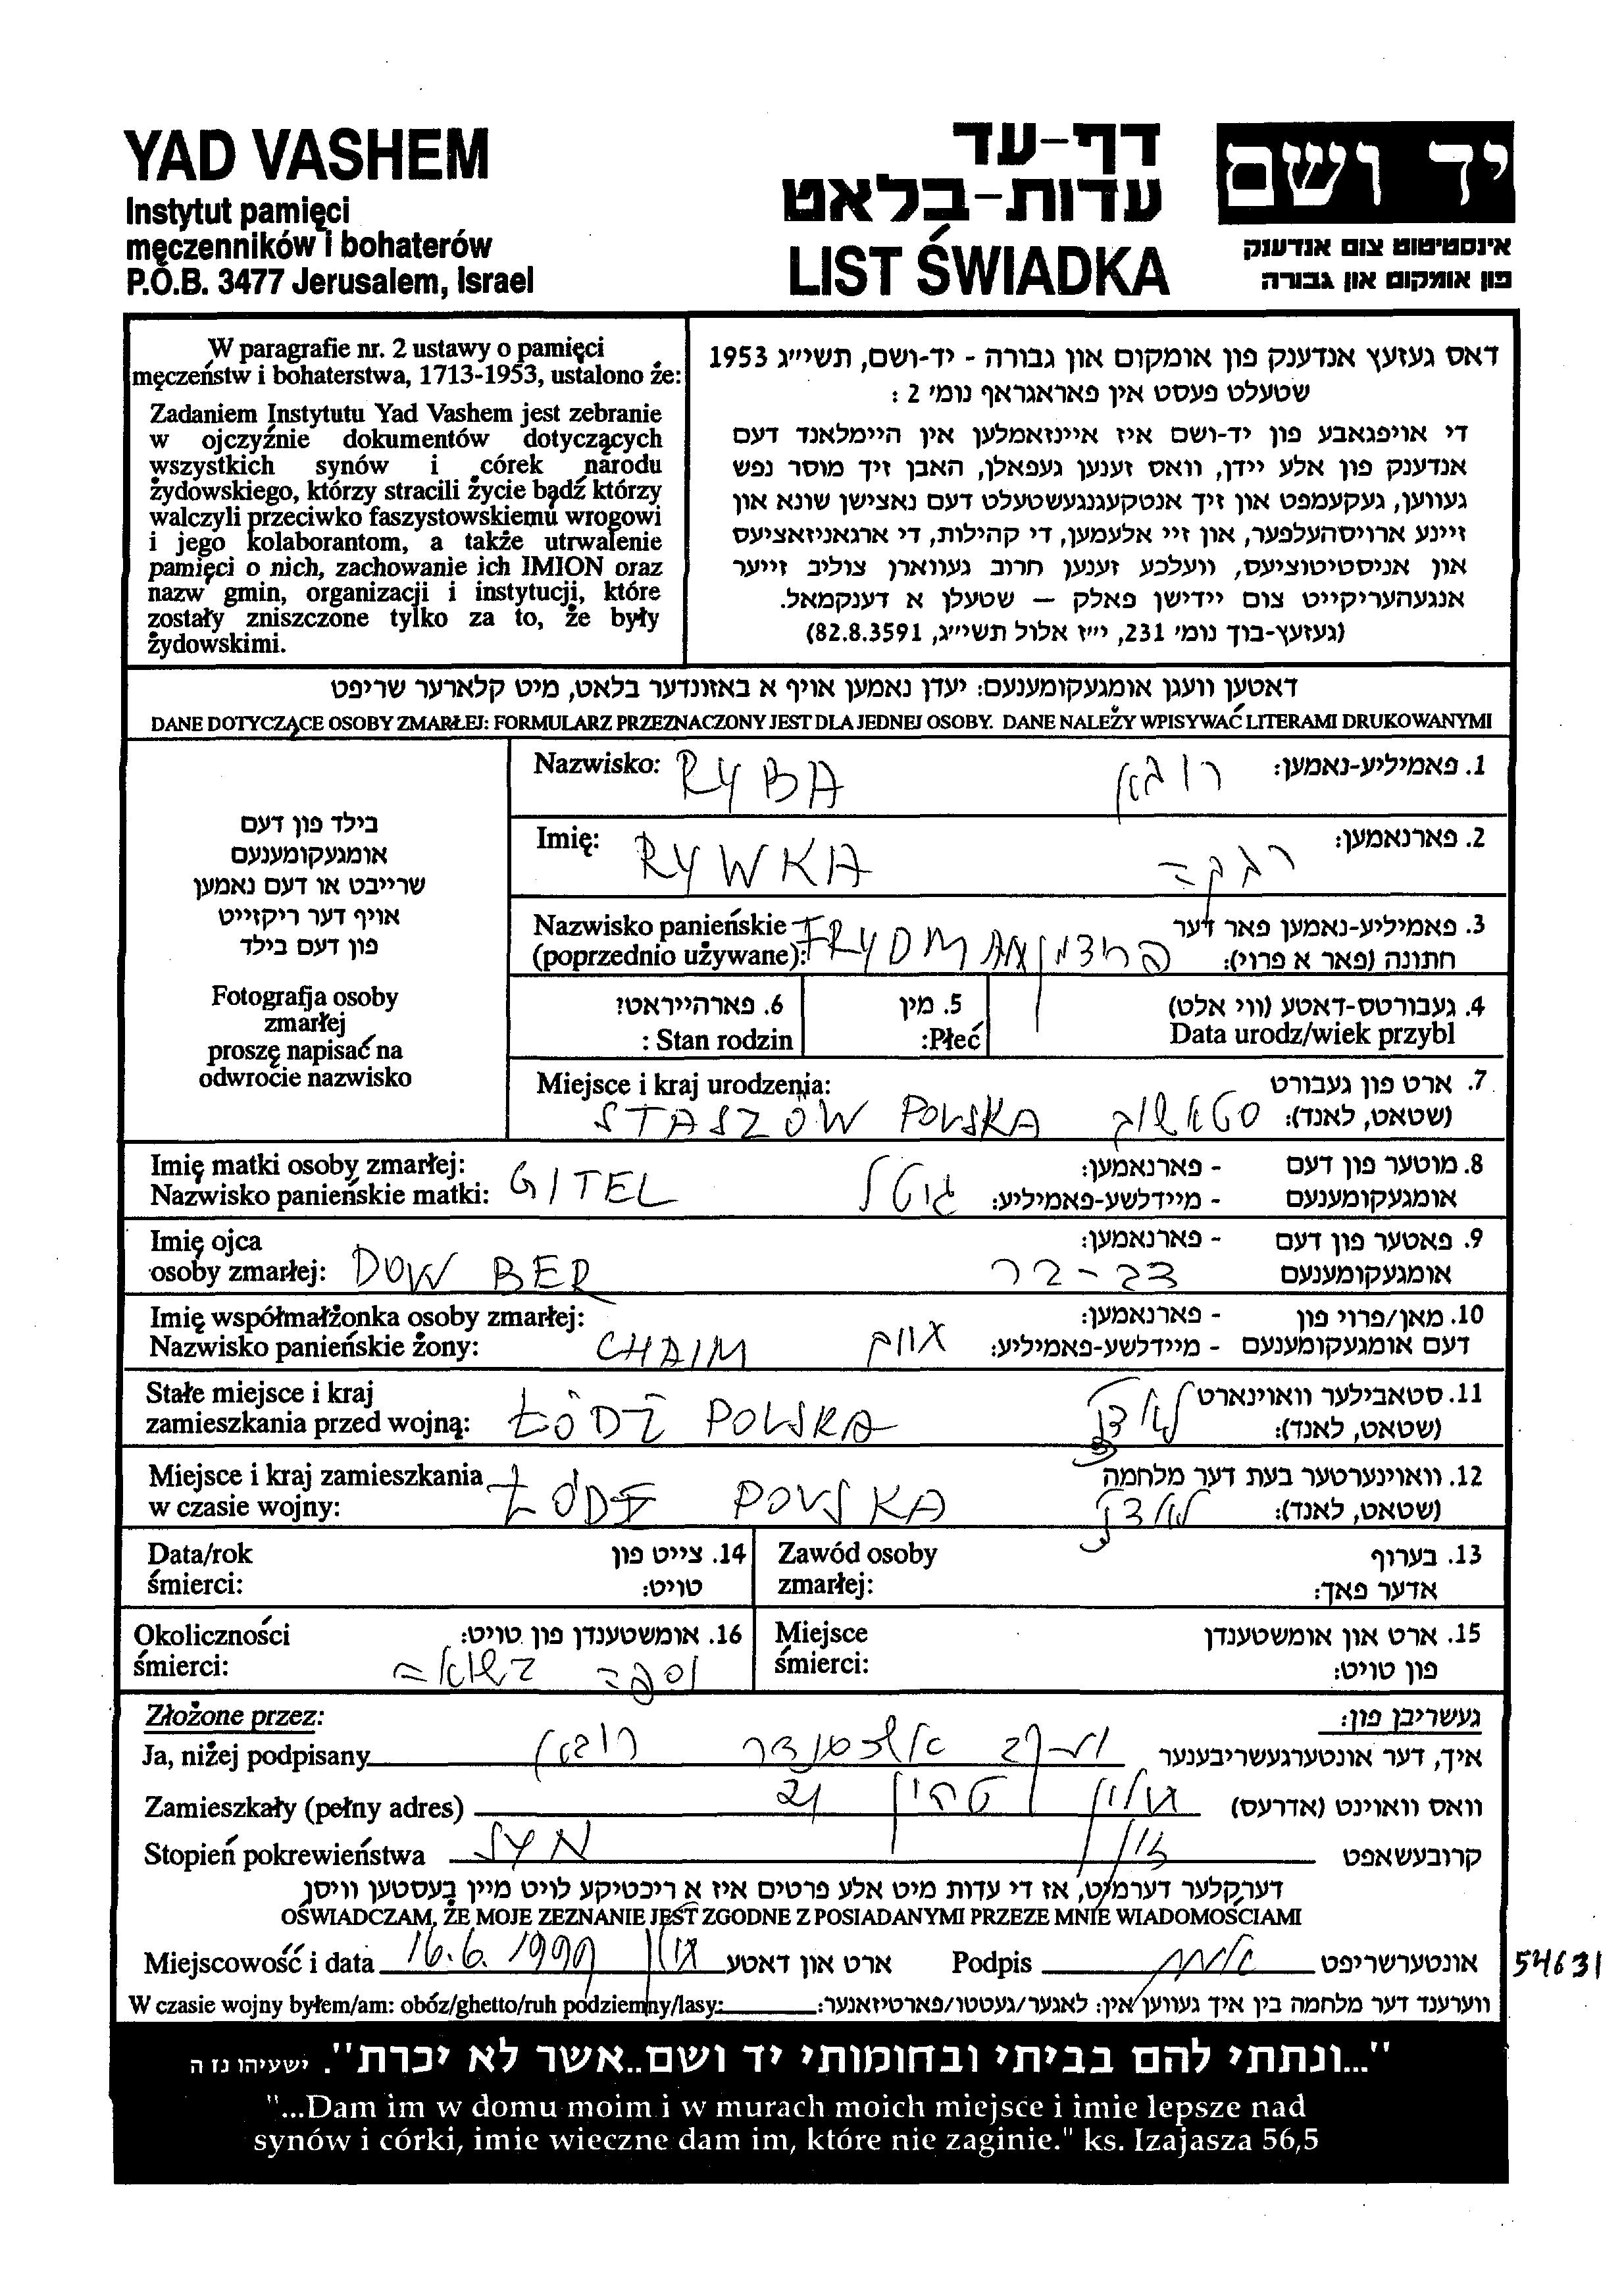 YAD VASHEM
Instytut pamięci
męczenników i bohaterów
P.O.B. 3477 Jerusalem, Israel
דף-עד
עדות-בלאט
LIST ŚWIADKA
יד ושם
אינסטיטוט צום אנדענק
פון אומקום און גבורה
W paragrafie nr. 2 ustawy o pamięci
męczeństw i bohaterstwa, 1713-1953, ustalono że:
Zadaniem Instytutu Yad Vashem jest zebranie
w ojczyźnie dokumentów dotyczących
wszystkich synów i córek narodu
żydowskiego, którzy stracili życie bądź którzy
walczyli przeciwko faszystowskiemu wrogowi
i jego kolaborantom, a także utrwalenie
pamięci o nich, zachowanie ich IMION oraz
nazw gmin, organizacji i instytucji, które
zostały zniszczone tylko za to, że były
żydowskimi.
דאס געזעץ אנדענק פון אומקום און גבורה - יד-ושם, תשי״ג 1953
שטעלט פעסט אין פאראגראף נומ׳ 2 :
די אויפגאבע פון יד-ושם איז איינזאמלען אין היימלאנד דעם
אנדענק פון אלע יידן, וואס זענען געפאלן, האבן זיך מוסר נפש
געווען, געקעמפט און זיך אנטקעגנגעשטעלט דעם נאצישן שונא און
זיינע ארויסהעלפער, און זיי אלעמען, די קהילות, די ארגאניזאציעס
און אניסטיטוציעס, וועלכע זענען חרוב געווארן צוליב זייער
אנגעהעריקייט צום יידישן פאלק — שטעלן א דענקמאל.
(געזעץ-בוך נומ׳ 231, י״ז אלול תשי״ג, 82.8.3591)
דאטען וועגן אומגעקומענעם: יעדן נאמען אויף א באזונדער בלאט, מיט קלארער שריפט
DANE DOTYCZĄCE OSOBY ZMARŁEJ: FORMULARZ PRZEZNACZONY JEST DLA JEDNEJ OSOBY. DANE NALEŻY WPISYWAĆ LITERAMI DRUKOWANYMI
בילד פון דעם
אומגעקומענעם
שרייבט או דעם נאמען
אויף דער ריקזייט
פון דעם בילד
Fotografja osoby
zmarłej
proszę napisać na
odwrocie nazwisko
Nazwisko: RYBA 1. פאמיליע-נאמען:
Imię: RYWKA רבקה 2. פארנאמען:
Nazwisko panieńskie 3. פאמיליע-נאמען פאר דער
(poprzednio używane): FRYDMAN פרידמן חתונה (פאר א פרוי):
6. פארהייראט? 5. מין 4. געבורטס-דאטע (ווי אלט)
Stan rodzin : Płeć: Data urodz/wiek przybl
Miejsce i kraj urodzenia: 7. ארט פון געבורט
STASZÓW POLSKA סטאשוב (שטאט, לאנד):
Imię matki osoby zmarłej: - פארנאמען: 8. מוטער פון דעם
Nazwisko panieńskie matki: GITEL גיטל - מיידלשע-פאמיליע: אומגעקומענעם
Imię ojca - פארנאמען: 9. פאטער פון דעם
osoby zmarłej: DOW BER דב-בר אומגעקומענעם
Imię współmałżonka osoby zmarłej: - פארנאמען: 10. מאן/פרוי פון
Nazwisko panieńskie żony: CHAIM - מיידלשע-פאמיליע: דעם אומגעקומענעם
Stałe miejsce i kraj 11. סטאבילער וואוינארט
zamieszkania przed wojną: ŁÓDŹ POLSKA לודז׳ (שטאט, לאנד):
Miejsce i kraj zamieszkania 12. וואוינערטער בעת דער מלחמה
w czasie wojny: ŁÓDŹ POLSKA לודז׳ (שטאט, לאנד):
Data/rok 14. צייט פון Zawód osoby 13. בערוף
śmierci: טויט: zmarłej: אדער פאך:
Okoliczności 16. אומשטענדן פון טויט: Miejsce 15. ארט און אומשטענדן
śmierci: נספה בשואה śmierci: פון טויט:
Złożone przez: געשריבן פון:
Ja, niżej podpisany אלכסנדר איך, דער אונטערגעשריבענער
Zamieszkały (pełny adres) וואס וואוינט (אדרעס)
Stopień pokrewieństwa SYN קרובעשאפט
דערקלער דערמיט, אז די עדות מיט אלע פרטים איז א ריכטיקע לויט מיין בעסטען וויסן
OŚWIADCZAM, ŻE MOJE ZEZNANIE JEST ZGODNE Z POSIADANYMI PRZEZE MNIE WIADOMOŚCIAMI
Miejscowość i data 16.6.1999 ארט און דאטע Podpis אונטערשריפט
54631
W czasie wojny byłem/am: obóz/ghetto/ruh podziemny/lasy: ווערענד דער מלחמה בין איך געווען אין: לאגער/געטטו/פארטיזאנער:
"...ונתתי להם בביתי ובחומותי יד ושם..אשר לא יכרת". ישעיהו נז ה
"...Dam im w domu moim i w murach moich miejsce i imie lepsze nad
synów i córki, imie wieczne dam im, które nie zaginie." ks. Izajasza 56,5